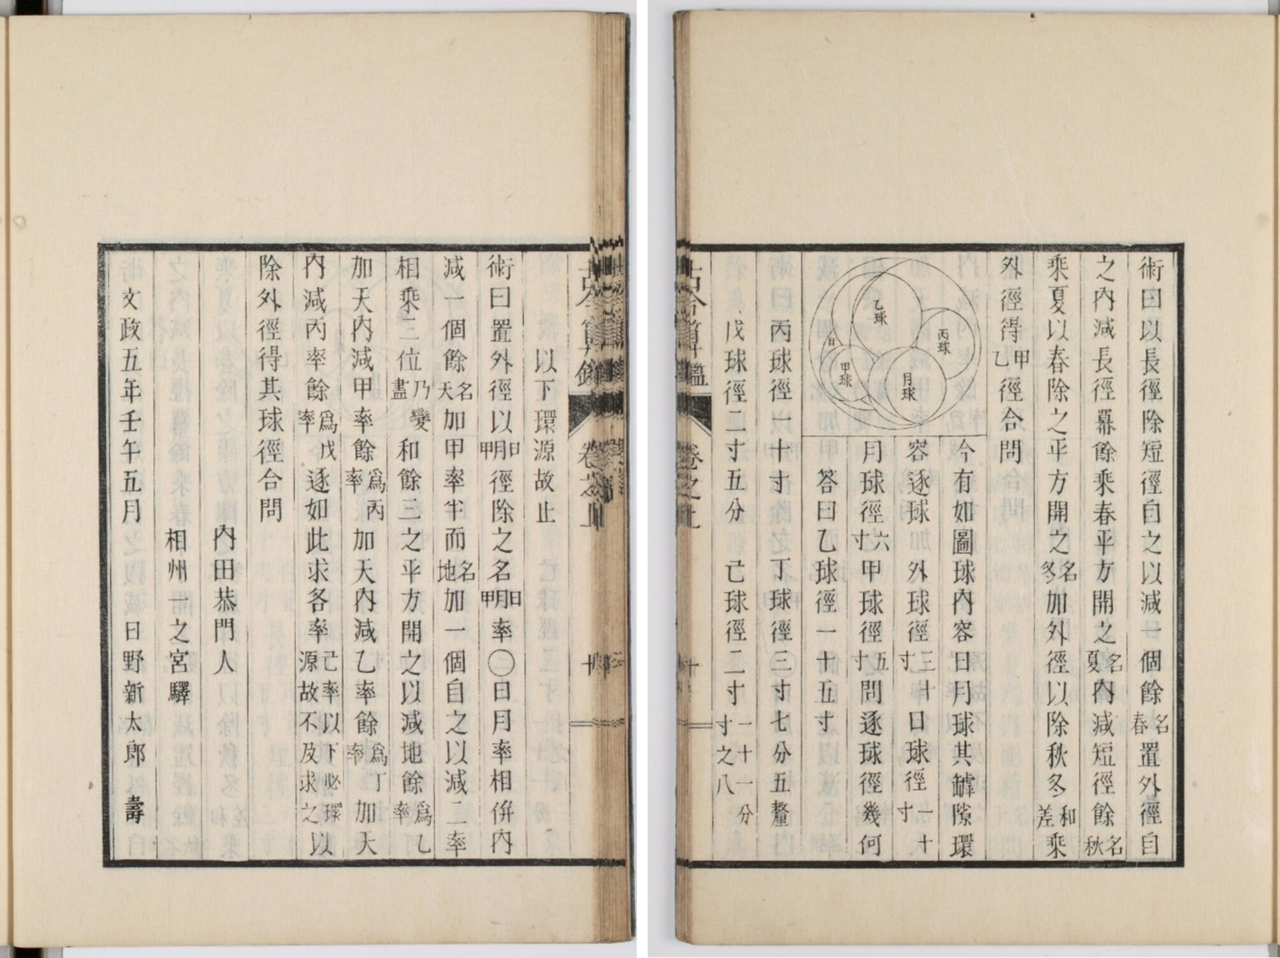 術曰以長徑除短徑自之以減一個餘名春置外徑自
之內減長徑冪餘乘春平方開之名夏內減短徑餘名秋
乘夏以春除之平方開之名冬加外徑以除秋冬和差乘
外徑得甲乙徑合問
今有如圖球內容日月球其罅隙環
容逐球外球徑三十寸日球徑一十寸
月球徑六寸甲球徑五寸問逐球徑幾何
答曰乙球徑一十五寸
丙球徑一十寸 丁球徑三寸七分五釐
戊球徑二寸五分 己球徑二寸一十一分寸之八
乙球
丙球
甲球
日
月球
古今算鑑 卷之上 十
以下環源故止
術曰置外徑以日月甲徑除之名日月甲率〇日月率相併內
減一個餘名天加甲率半而名地加一個自之以減二率
相乘三位乃變盡和餘三之平方開之以減地餘爲乙率
加天內減甲率餘爲丙率加天內減乙率餘爲丁率加天
內減丙率餘爲戊率逐如此求各率己率以下必環源故不及求之以
除外徑得其球徑合問
內田恭門人
相州一之宮驛
文政五年壬午五月 日野新太郎 壽